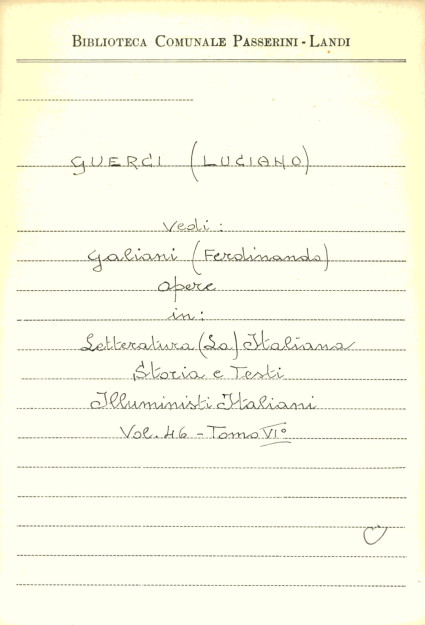 BIBLIOTECA COMUNALE PASSERINI - LANDI
GUERCI (LUCIANO)
Vedi:
Galiani (Ferdinando)
opere
in:
Letteratura (La) Italiana
Storia e Testi
Illuministi Italiani
Vol. 46 - Tomo VI°